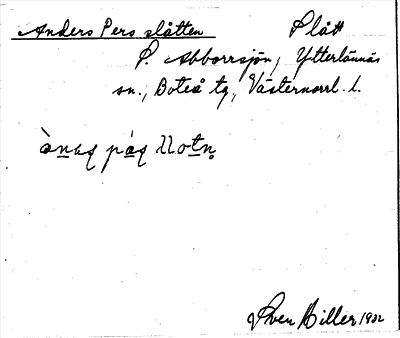 Anders Pers slåtten Slått
S. Abborrsjön, Ytterlännäs
sn., Boteå tg, Västernorrl. l.
Sven Hiller 1932